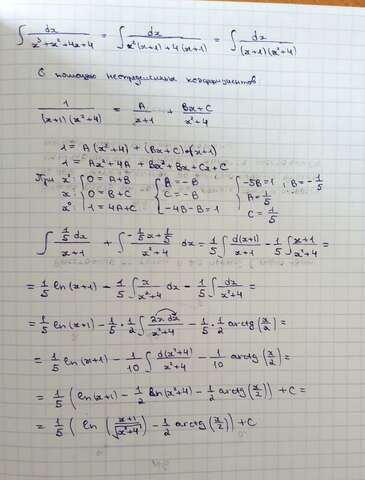 ∫ dx/(x³+x²+4x+4) = ∫ dx/(x²(x+1)+4(x+1)) = ∫ dx/((x+1)(x²+4))
С помощью неопределенных коэффициентов
1/((x+1)(x²+4)) = A/(x+1) + (Bx+C)/(x²+4)
1 = A(x²+4) + (Bx+C)·(x+1)
1 = Ax²+4A + Bx²+Bx+Cx+C
При x²: { 0 = A+B { A = -B { -5B = 1 ; B = -1/5
x: { 0 = B+C { C = -B { A = 1/5
x⁰: { 1 = 4A+C { -4B-B = 1 { C = 1/5
∫ (1/5 dx)/(x+1) + ∫ (-1/5 x + 1/5)/(x²+4) dx = 1/5 ∫ d(x+1)/(x+1) - 1/5 ∫ (x+1)/(x²+4) =
= 1/5 ln(x+1) - 1/5 ∫ x/(x²+4) dx - 1/5 ∫ dx/(x²+4) =
= 1/5 ln(x+1) - 1/5 · 1/2 ∫ 2x dx/(x²+4) - 1/5 · 1/2 arctg(x/2) =
= 1/5 ln(x+1) - 1/10 ∫ d(x²+4)/(x²+4) - 1/10 arctg(x/2) =
= 1/5 ( ln(x+1) - 1/2 ln(x²+4) - 1/2 arctg(x/2) ) + C =
= 1/5 ( ln( (x+1)/√(x²+4) ) - 1/2 arctg(x/2) ) + C